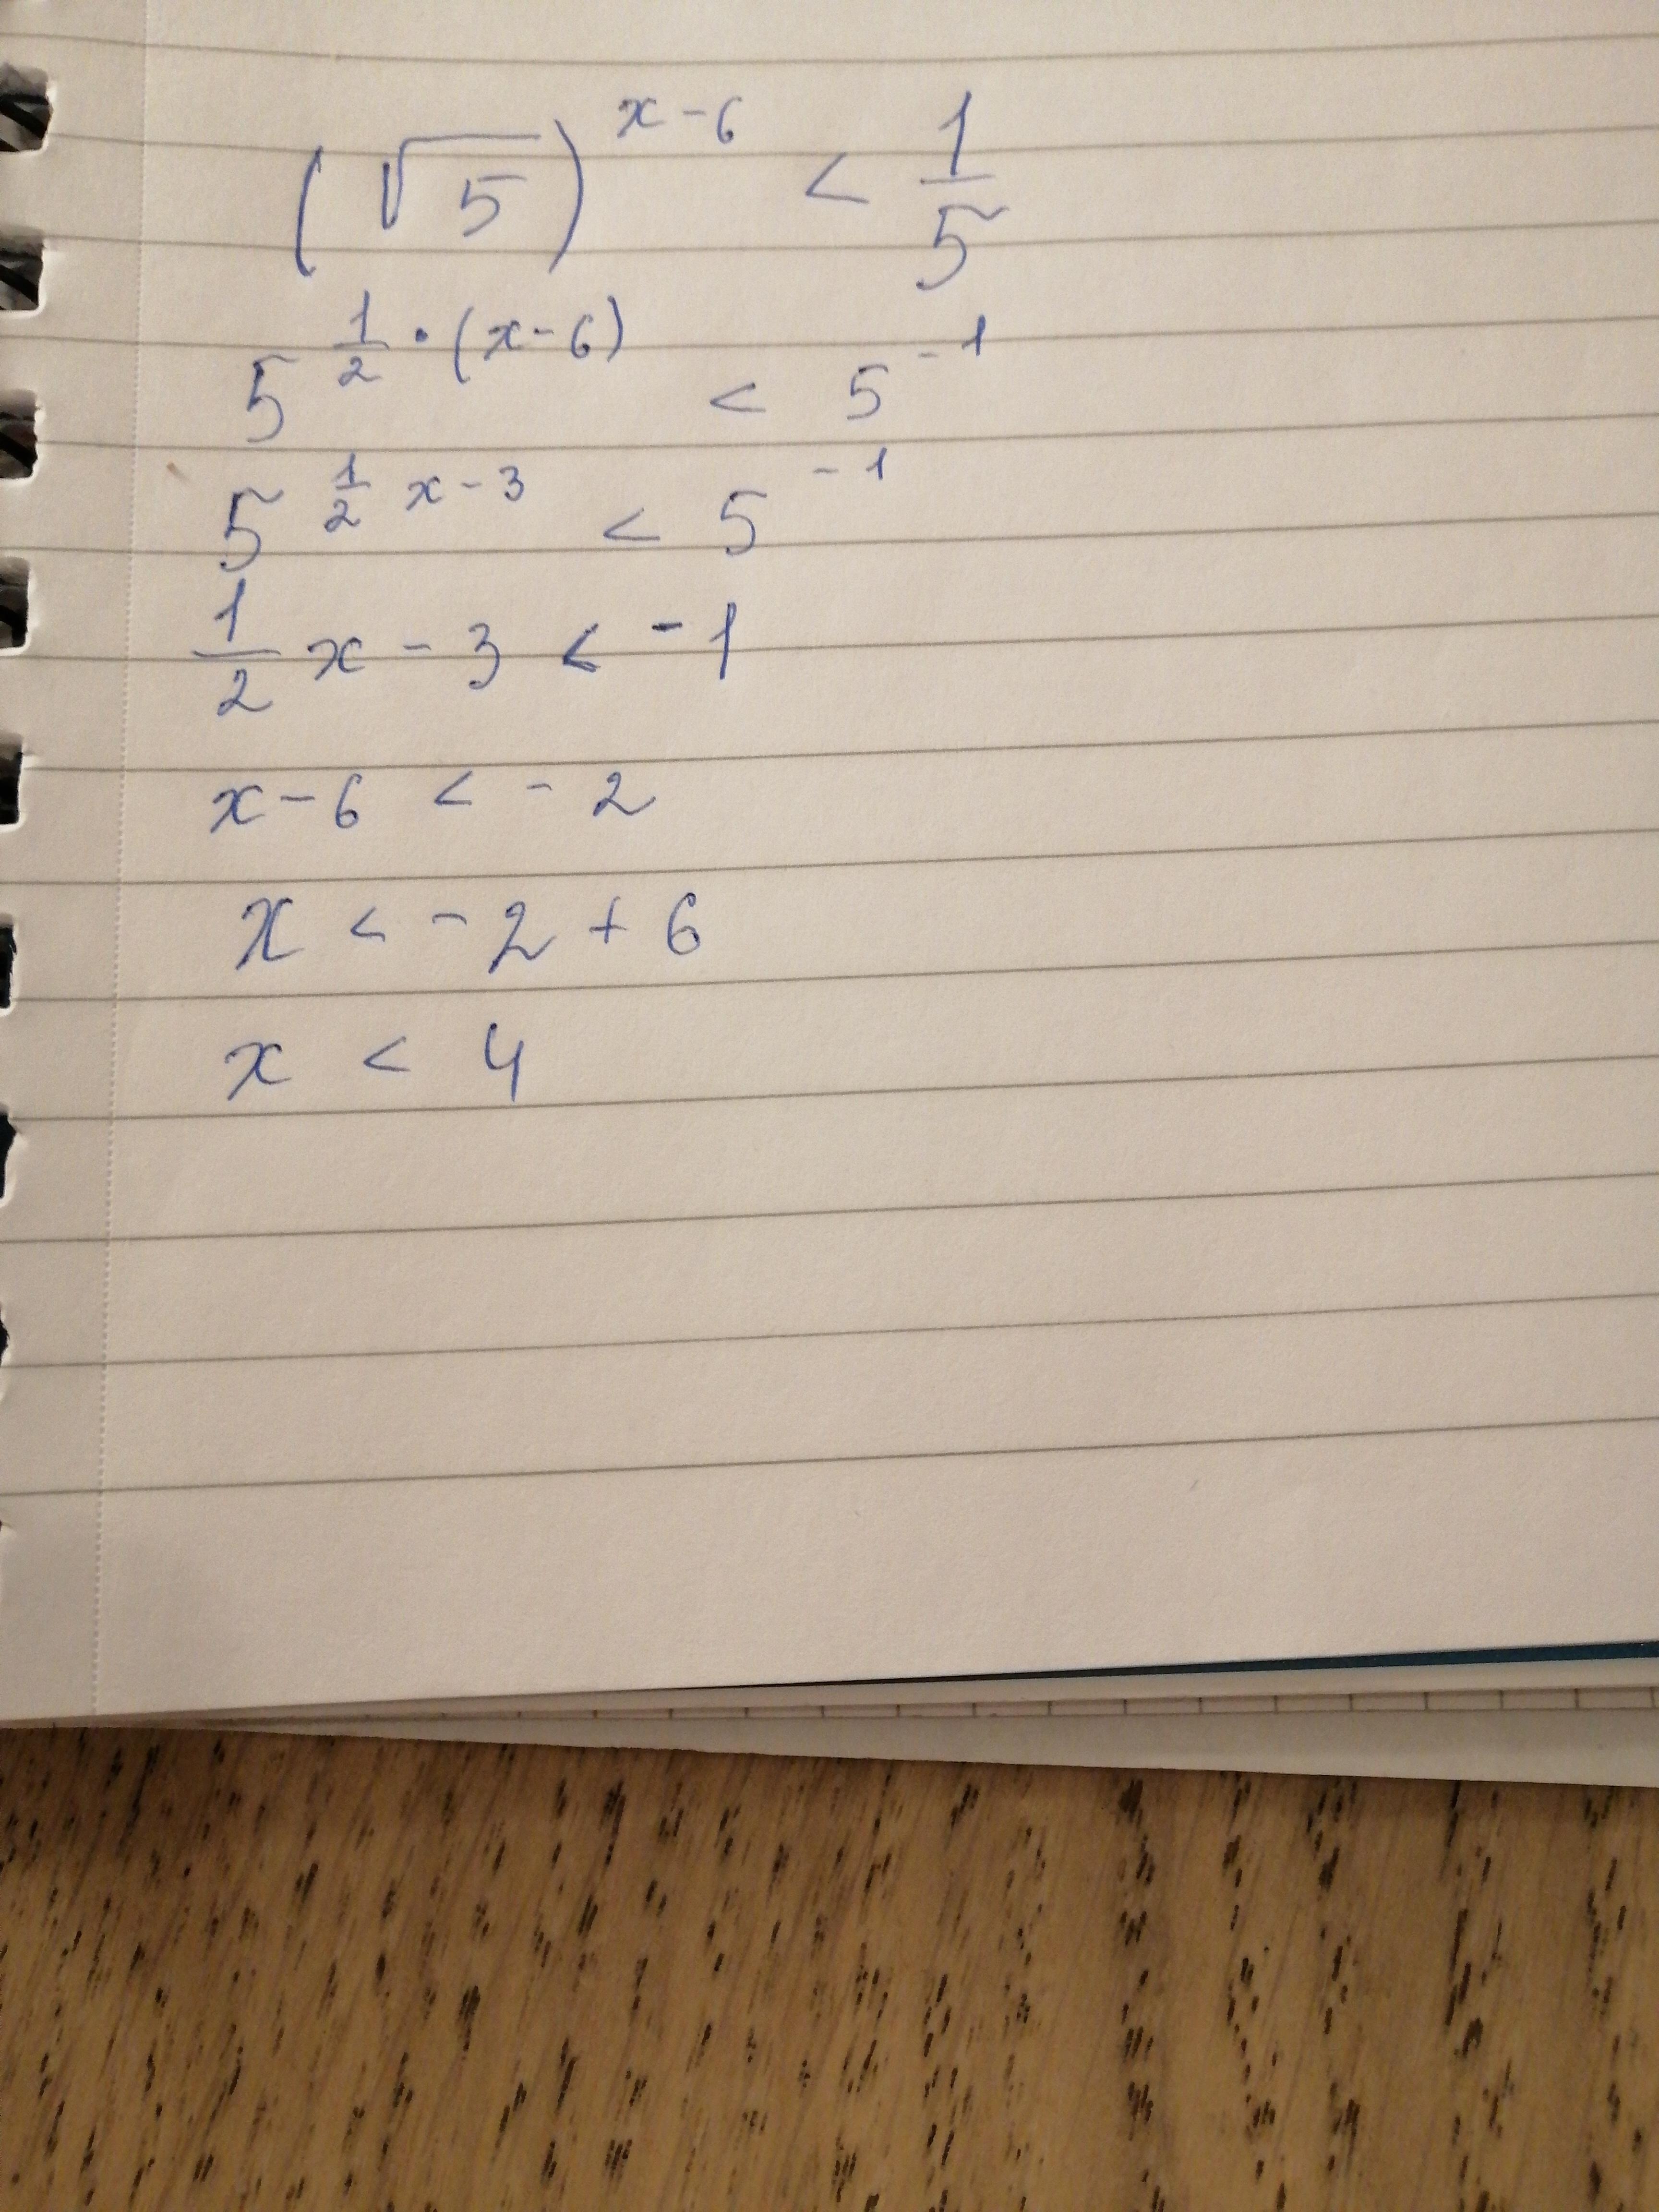 (√5)^(x-6) < 1/5
5^(1/2 · (x-6)) < 5^(-1)
5^(1/2 x-3) < 5^(-1)
1/2 x - 3 < -1
x - 6 < -2
x < -2 + 6
x < 4